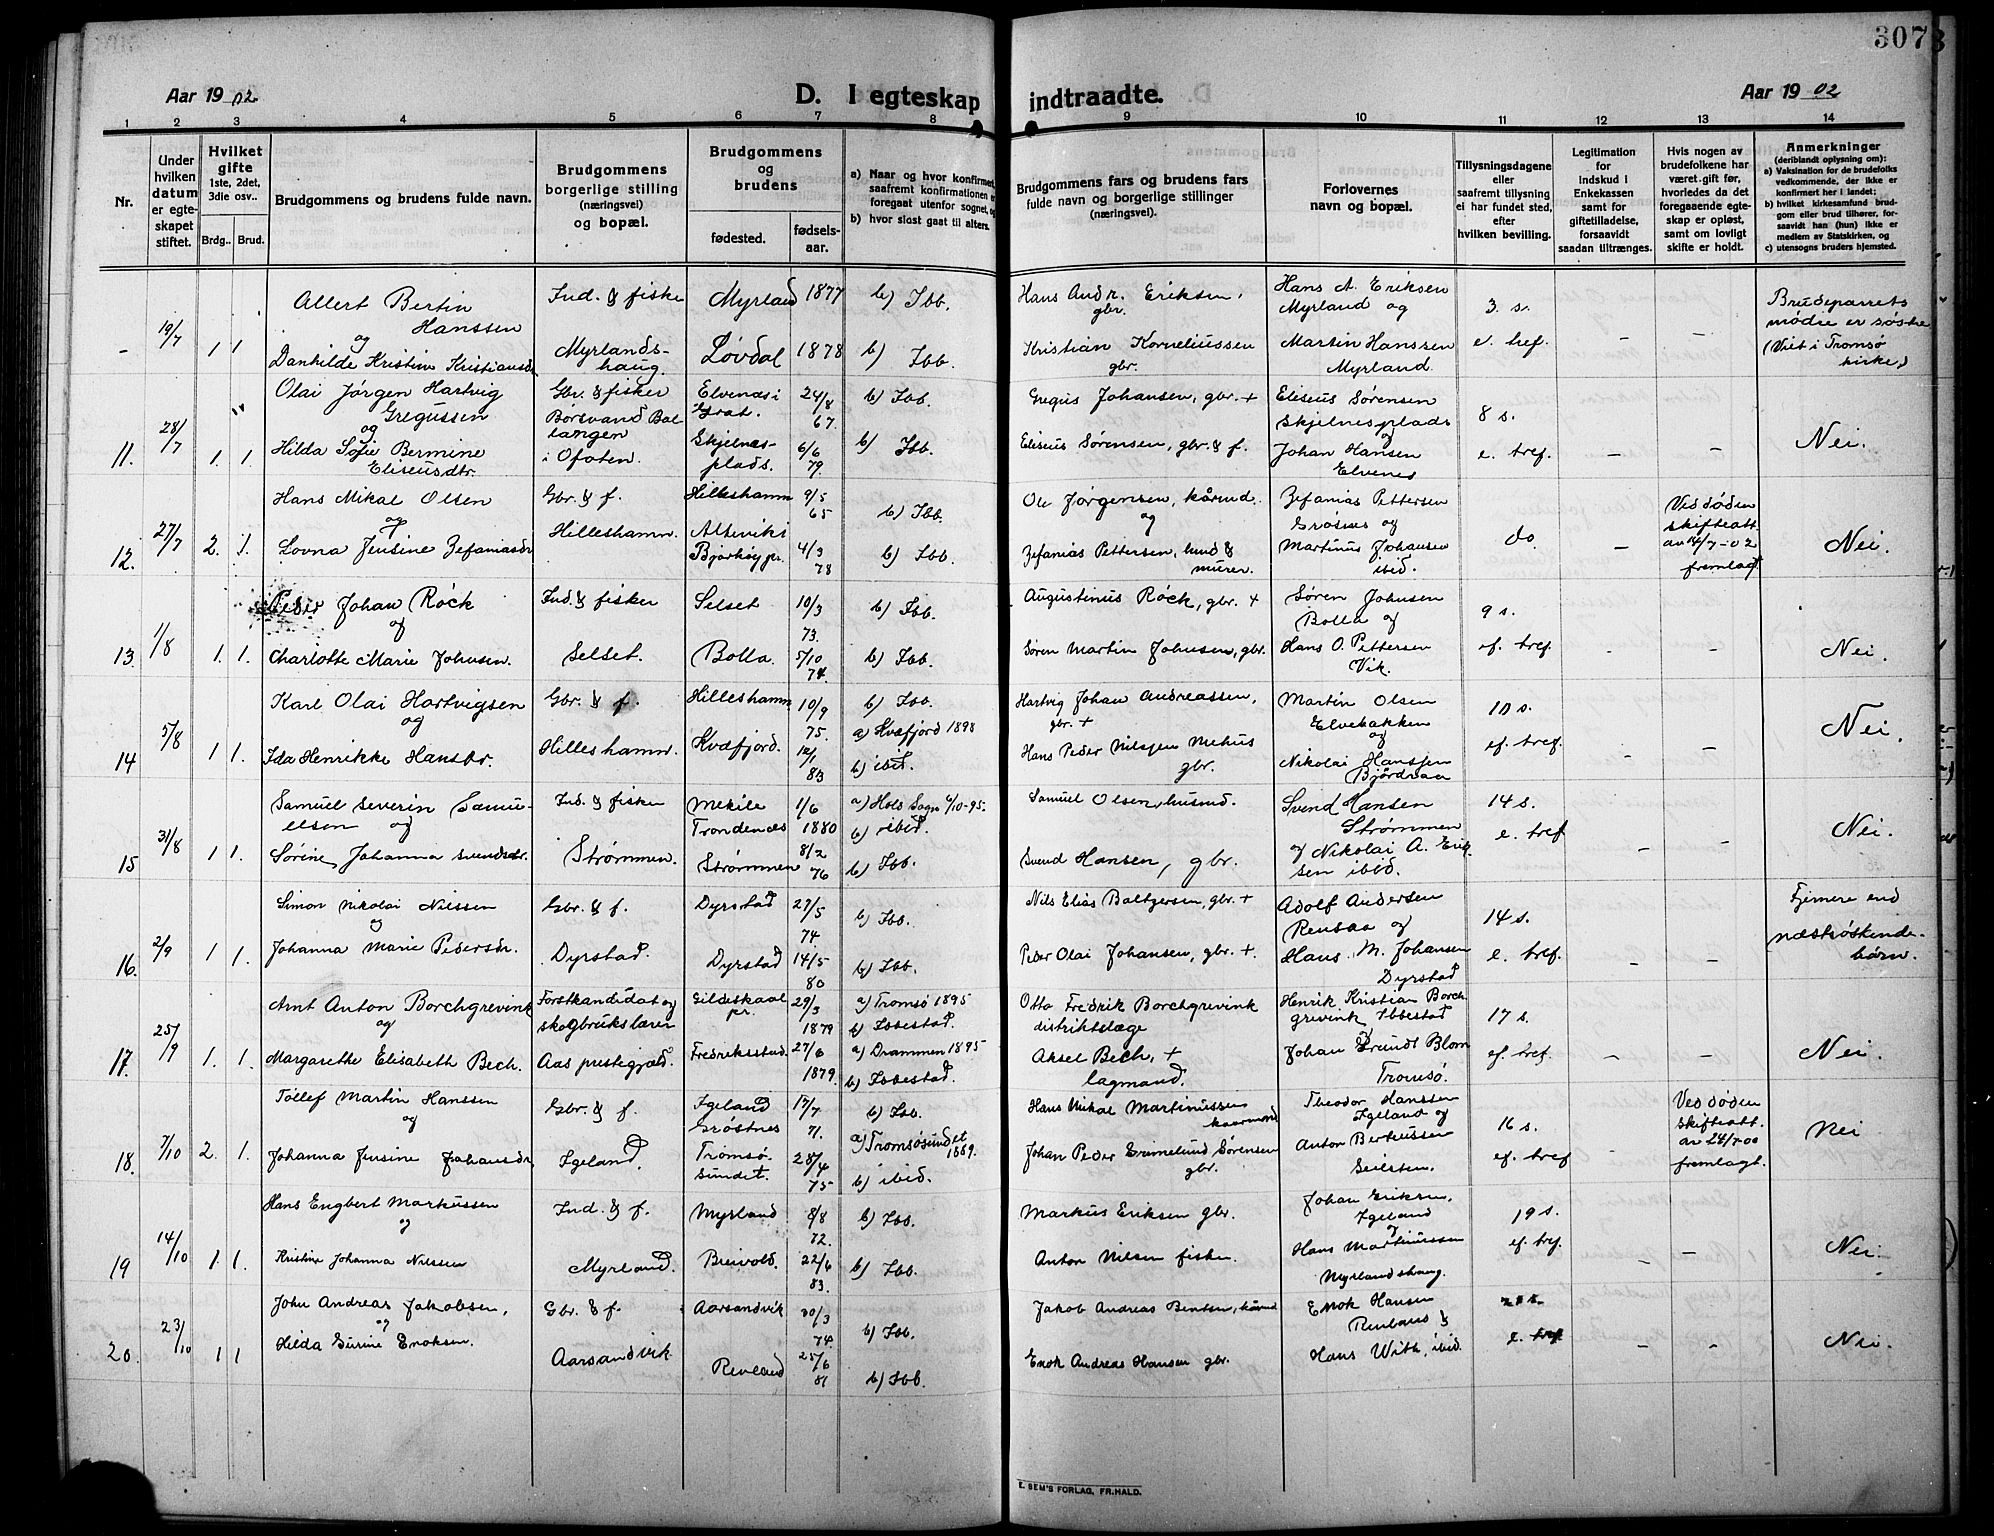 307
Aar 1902
D. I egteskap indtraadte.
Aar 1902
1 2 3 4 5 6 7 8 9 10 11 12 13 14
Nr.
Under hvilken datum er egteskapet stiftet.
Hvilket gifte 1ste, 2det, 3die osv..
Brdg.. Brud.
Brudgommens og brudens fulde navn.
Brudgommens borgerlige stilling (næringsvei) og bopæl.
Brudgommens og brudens
fødested.
fødsels-aar.
a) Naar og hvor konfirmert, saafremt konfirmationen er foregaat utenfor sognet, og
b) hvor sidst gaat til alters.
Brudgommens fars og brudens fars fulde navn og borgerlige stillinger (næringsvei).
Forlovernes navn og bopæl.
Tillysningsdagene eller saafremt tillysning ei har fundet sted, efter hvilken bevilling.
Legitimation for Indskud i Enkekassen samt for giftetilladelse, forsaavidt saadan tiltrænges.
Hvis nogen av brudefolkene har været gift før, hvorledes da det foregaaende egteskap er opløst, samt om lovligt skifte er holdt.
Anmerkninger (deriblandt oplysning om):
a) Vaksination for de brudefolks vedkommende, der ikke er konfirmert her i landet;
b) hvilket kirkesamfund brudgom eller brud tilhører, forsaavidt han (hun) ikke er medlem av Statskirken, og
c) utensogns bruders hjemsted.
- 19/7 1 1 Allert Bertin Hanssen og Dankilde Kristine Kristiansdr. Ind. & fisker Myrlandshaug. Myrland 1877 b) Ibb. Løvdal 1878 b) Ibb. Hans Andr. Eriksen, gbr. Kristian Korneliussen gbr. Hans A. Eriksen Myrland og Martin Hanssen Myrland. 3. s. e. tref. - - Brudeparrets mødre er søstre (Viet i Tromsø kirke)
11. 28/7 1. 1. Olai Jørgen Hartvig Gregussen og Hilda Sofie Bermine Eliseusdtr. Gbr. & fisker Børsvand Ballangen i Ofoten. Elvenes i Grat. 24/8 67. b) Ibb. Skjelnesplads. 6/6 79. b) Ibb. Gregus Johansen, gbr. + Eliseus Sørensen, gbr. & f. Eliseus Sørensen Skjelnesplads og Johan Hansen Elvenes 8 s. e. tref. - - Nei.
12. 27/7 2. 1. Hans Mikal Olsen og Lovna Jensine Zefaniasdr Gbr. & f. Hilleshamn. Hilleshamn 9/5 65 b) Ibb. Altevik i Bjarkøy pr. 4/3 78 b) Ibb. Ole Jørgensen, kårmd. og Zefanias Pettersen, husmd & murer. Zefanias Pettersen Grøsnes og Martinus Johansen ibid. do. - Ved døden skifteatt. av 14/7-02 fremlagt Nei.
13. 1/8 1. 1. Peder Johan Røck og Charlotte Marie Johnsen. Ind. & fisker Selset. Selset 10/3 73. b) Ibb. Bolla. 5/10 74. b) Ibb. Augustinus Røck, gbr. + Søren Martin Johnsen, gbr. Søren Johnsen Bolla og Hans O. Pettersen Vik. 9 s. ef. tref. - - Nei.
14 5/8 1 1. Karl Olai Hartvigsen og Ida Henrikke Hansdr. Gbr. & f. Hilleshamn. Hilleshamn 10/9 75. b) Ibb. Kvæfjord. 12/1 83 a) Kvæfjord 1898 b) ibid. Hartvig Johan Andreassen, gbr. + Hans Peder Nilsjen Mehus gbr. Martin Olsen Elvebakken og Nikolai Hanssen Bjørdnaa 10 s. ef. tref. - - Nei.
15 31/8 1 1. Samuel Severin Samuelsen og Sørine Johanna Svendsdr. Ind. & fisker Strømmen. Mekile Trondenes 1/6 1880 a) Hols Sogn 6/10-95. b) ibid. Strømmen 8/2 76 b) Ibb. Samuel Olsen, husmd. Svend Hansen, gbr. Svend Hansen Strømmen og Nikolai A. Eriksen ibid. 14 s. e. tref - - Nei.
16. 2/9 1 1. Simon Nikolai Nilssen og Johanna Marie Pedersdr. Gbr. & f. Dyrstad. Dyrstad 27/5 74. b) Ibb. Dyrstad 14/5 80 b) Ibb. Nils Elias Baltzersen, gbr. + Peder Olai Johansen, gbr. +. Adolf Andersen Rensaa og Hans M. Johansen Dyrstad 14 s. e. tref. - - Fjernere end næstsøskendebørn.
17. 25/9 1. 1. Arnt Anton Borchgrevink og Margarethe Elisabeth Bech. Forstkandidat og skogbrukslærer Aas prestegjæld. Gildeskaal pr. 29/3 1879 a) Tromsø 1895 b) Ibbestad. Fredriksstad 27/6 1879. a) Drammen 1895 b) Ibbestad. Otto Fredrik Borchgrevink distriktslæge Aksel Bech, + lagmand. Henrik Kristian Borchgrevink Ibbestad & Johan Grundt Blom Tromsø. 17 s. ef. tref. - - Nei.
18. 7/10 2. 1. Tollef Martin Hanssen og Johanna Jensine Johansdr. Gbr. & f. Igeland. Igeland Grøstnes 17/7 71. b) Ibb. Tromsøsundet. 28/4 75 a) Tromsøsundet 1889. b) ibid. Hans Mikal Martinussen kaarmand Johan Peder Grimelund Sørensen gbr. Theodor Hanssen Igeland og Anton Berteussen Seilsten. 16 s. ef. tref - Ved døden skifteatt. av 24/7-00 fremlagt. Nei
19 14/10 1. 1. Hans Engbert Markussen og Kristine Johanna Nilssen Ind. & f. Myrland. Myrland 8/8 72. b) Ibb. Breivold. 22/6 83. b) Ibb. Markus Eriksen gbr. Anton Nilsen fisker Johan Eriksen, Igeland og Hans Martinussen Myrlandshaug. 19 s. ef. tref. - - Nei.
20. 23/10 1 1 John Andreas Jakobsen, og Hilda Gurine Enoksen. Gbr. & f. Aarsandvik Aarsandvik 30/3 74. b) Ibb. Revland 25/6 81 b) Ibb. Jakob Andreas Bentsen, kårmd Enok Andreas Hansen gbr. Enok Hansen Renland & Hans With, ibid. 21 s. e. tref - - Nei.
E. SEM'S FORLAG, FR.HALD.